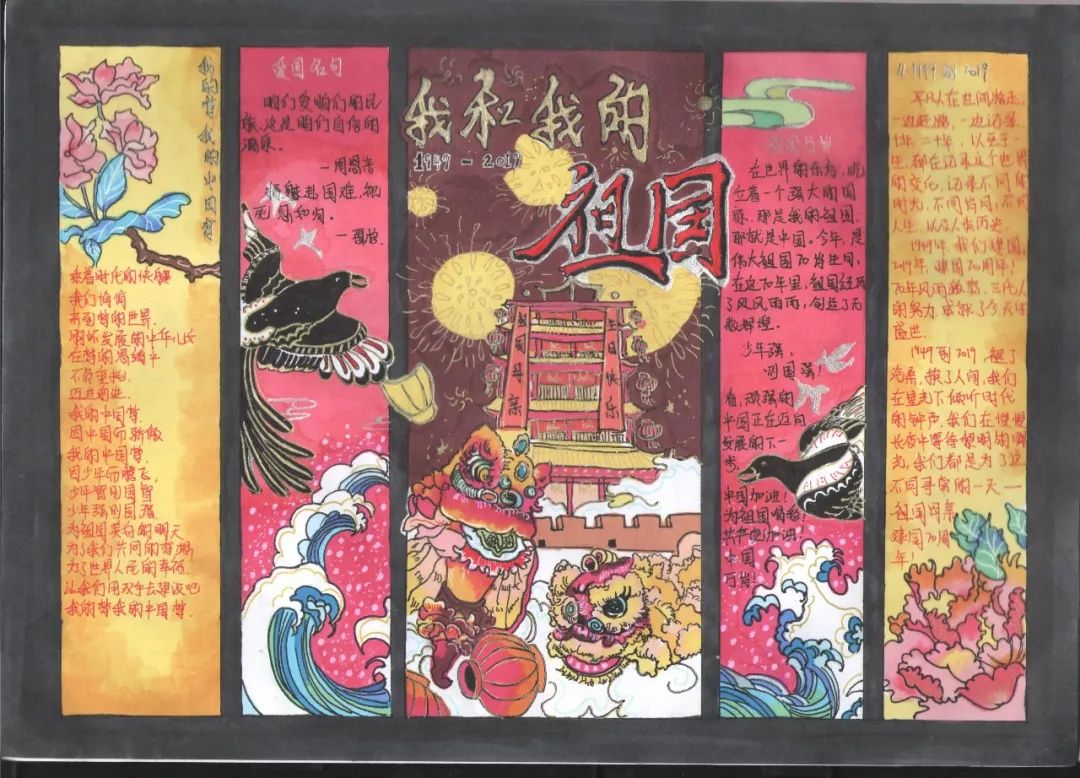 我的梦 我的中国梦
乘着时代的快艇
我们倘徉
不负重托
迈进前进
我的中国梦
因中国而骄傲
我的中国梦
因少年而腾飞
少年智则国智
少年强则国强
为祖国美好的明天
为了我们共同的梦想
为了世界人民的幸福
让我们用双手去建设吧
我的梦我的中国梦
爱国名句
咱们爱咱们的民
族,这是咱们自信的
源泉。
—周恩来
捐躯赴国难,视
死忽如归。
—曹植
我和我的
1949-2019
祖国
祖国母亲
生日快乐
祖国万岁
在世界的东方,屹
立着一个强大的国
家,那是我的祖国,
那就是中国。今年,是
伟大祖国70岁生日,
在这70年里,祖国经历
了风风雨雨,创造了无
数辉煌。
少年强,
则国强!
看,顽强的
中国正在迈向
发展的下一
步,
中国加油!
为祖国喝彩!
共产党加油!
中国
万岁!
从1949到2019
平凡人在世间游走,
一边赶路,一边记录
十年,二十年,以至于
生,都在记录这个世界
的变化,记录不同的
时光,不同岁月,不同
人生,以及人类历史
1949年,我们建国,
2019年,建国70周年!
70年风雨兼程,三代人
的努力,成就了今天的
盛世。
1949到2019,挺了
沧桑,换了人间,我们
在星光下倾听时代
的钟声,我们在慢慢
长夜中等待黎明的曙
光,我们都是为了这
不同寻常的一天——
祖国母亲
建国70周
年!